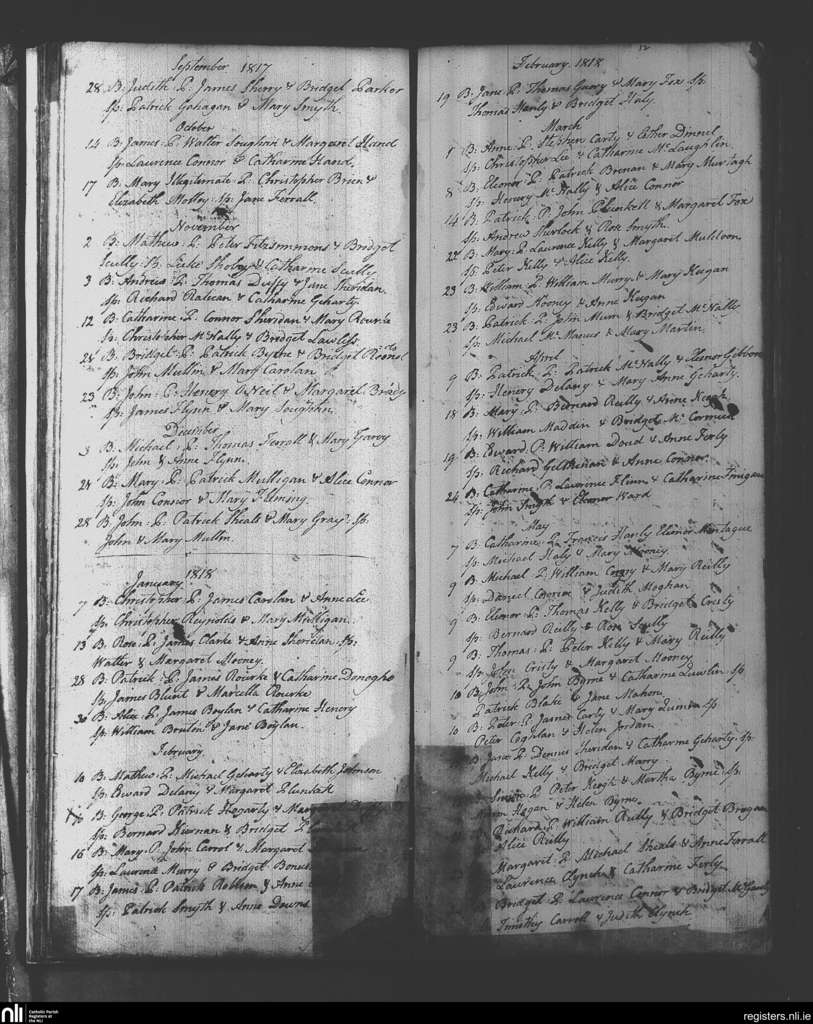 September 1817
28 B. Judith P. James Sherry & Bridget Parker
Sp. Patrick Gahagan & Mary Smyth.
October
14 B. James. P. Walter Soughan & Margaret Hand
Sp. Laurence Connor & Catharine Hand.
17 B. Mary Illegitemate. P. Christopher Brien &
Elizabeth Molloy. Sp. Jane Ferrall.
November
2 B. Mathew. P. Peter Fitzsimmons & Bridget
Scully Sp. Luke & Catharine Scully
3 B. Andrew P. Thomas Duffy & Jane Sheridan.
Sp. Richard & Catharine Geharty
12 B. Catharine P. Connor Sheridan & Mary Rourke
Sp. Christopher McNally & Bridget Lawless
24 B. Bridget P. Patrick Byrne & Bridget
Sp. John Mullen & Mary Carolan
23 B. John. P. Henery ONeil & Margaret Brady
Sp. James Flynn & Mary Soughan.
December
3 B. Michael. P. Thomas Ferroll & Mary Garey
Sp. John & Anne Flynn.
24 B. Mary. P. Patrick Mulligan & Alice Connor
Sp. John Connor & Mary Fleming.
28 B. John. P. Patrick Sheals & Mary Gray. Sp.
John & Mary Mullen.
1818
January
7 B. Christopher. P. James Carolan & Anne Lee
Sp. Christopher Reynolds & Mary Mulligan.
13 B. Rose. P. James Clarke & Anne Sheridan. Sp.
Walter & Margaret Mooney.
28 B. Patrick. P. James Rourke & Catharine Donagho
Sp. James Blunt & Marcella Rourke
30 B. Alice P. James Boylan & Catharine Henery
Sp. William & Jane Boylan.
February
10 B. Mathew P. Michael Geharty & Elizabeth Johnson
Sp. Edward Delany & Margaret Plunkett
B. George P. Patrick Hegarty & Mary
Sp. Bernard Kiernan & Bridget
16 B. Mary P. John Carrol & Margaret
Sp. Laurence Murry & Bridget
17 B. James. P. Patrick & Anne
Sp. Patrick Smyth & Anne Downs
12
February. 1818
19 B. Jane P. Thomas Garry & Mary Fox Sp.
Thomas Hanly & Bridget Haly.
March
1 B. Anne. P. Stephen Carty & Esther
Sp. Christopher Lee & Catharine McLaughlin.
8 B. Eleonor P. Patrick Brenan & Mary Murtagh
Sp. Henery McNally & Alice Connor
14 B. Patrick P. John Plunkett & Margaret Fox
Sp. Andrew Sherlock & Rose Smyth.
22 B. Mary. P. Laurence Kelly & Margaret Muldoon
Sp. Peter Kelly & Alice Kelly.
23 B. William P. William Murry & Mary Keegan
Sp. Edward Mooney & Anne Keegan
23 B. Patrick P. John & Bridget McNally
Sp. Michael McManus & Mary Martin.
April
9 B. Patrick. P. Patrick McNally & Elenor Gibbons
Sp. Henery Delany & Mary Anne Geharty.
18 B. Mary P. Bernard Reilly & Anne Keogh
Sp. William Madden & Bridget McCormick
19 B. Edward. P. William Doud & Anne Ferly
Sp. Richard & Anne Connor.
24 B. Catharine P. Laurence Flynn & Catharine Finigan
Sp. John Smyth & Eleonor Ward
May
7 B. Catharine. P. Francis Hanly Elenor Montague
Sp. Michael Haly & Mary Mooney.
9 B. Michael P. William & Mary Reilly
Sp. Daniel & Judith Meghan
9 B. Eleonor P. Thomas Kelly & Bridget Cristy
Sp. Bernard Reilly & Rose Scully
9 B. Thomas. P. Peter Kelly & Mary Reilly
Sp. John Cristy & Margaret Mooney
10 B. John. P. John Byrne & Catharine Lawler Sp.
Patrick Blake & Jane Mahon.
10 B. Peter. P. James Carty & Mary Sp.
Peter Coghlan & Helen Jordan.
B. Jane P. Dennis Sheridan & Catharine Geharty. Sp.
Michael Kelly & Bridget
P. Peter Keogh & Martha Byrne. Sp.
Hogan & Helen Byrne.
Richard. P. William Reilly & Bridget
Alice Reilly
Margaret. P. Michael Sheals & Anne Farrall
Laurence Clynch & Catharine Ferly
Bridget. P. Laurence Connor & Bridget
Timothy Carroll & Judith Clynch
nli Catholic Parish Registers at the NLI
registers.nli.ie